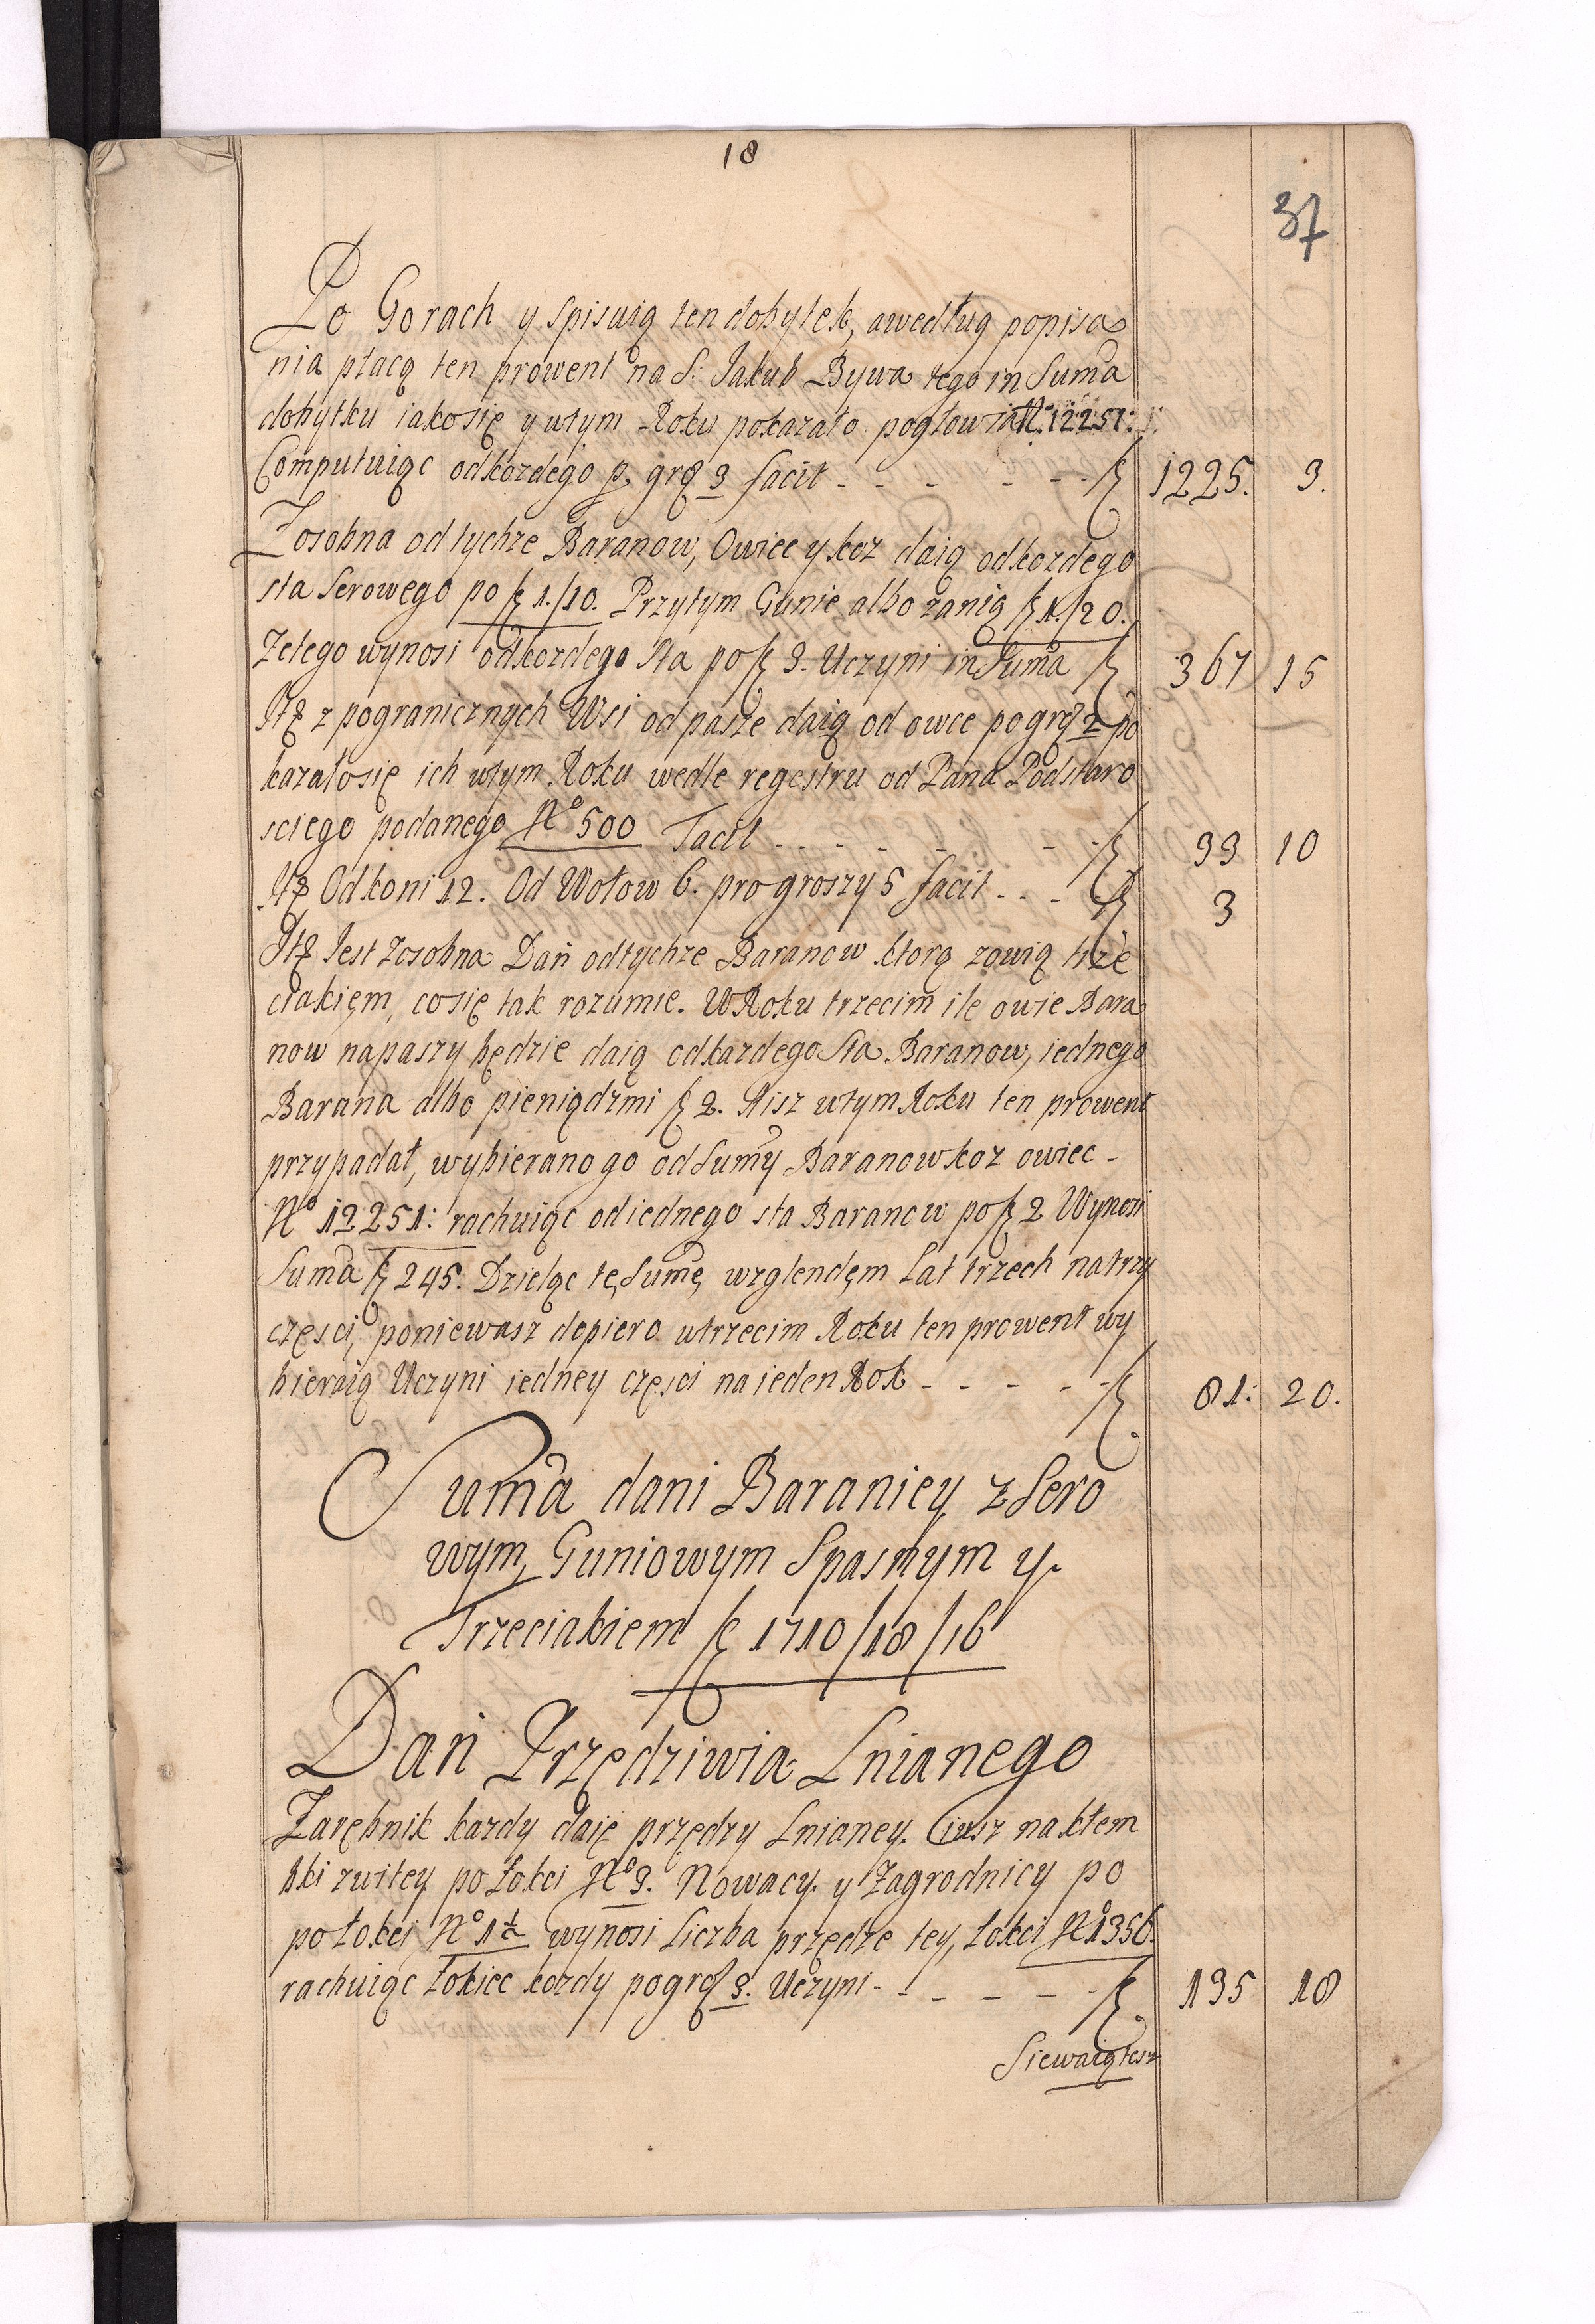 18
37
Po Gorach y spisuią ten dobytek, awedług popisa
nia płacą ten prowent na S: Jakub Bywa tego in Suma
dobytku iakosię y wtym Roku pokazało pogłowia N. 12251:
Computuiąc odkozdego p. gro 3 facit - - - - - - ƒ 1225. 3.
Zosobna od tychze Baranow, Owiec y koz daią odkozdego
sta Serowego po ƒ 1./10. Przytym Gunie albo zanię ƒ 1./20.
Zetego wynosi odkozdego sta po ƒ 3. Uczyni in Suma ƒ 367 15
Itē z pogranicznych Wsi od pasze daią od owce po gro 2 po
kazałosię ich wtym Roku wedle regestru od Pana Podstaro
sciego podanego No 500 Facit - - - - - - ƒ 33 10
Itē Od koni 12. Od Wołow 6. pro groszy 5 facit - - - ƒ 3
Itē Jest zosobna Dań odtychze Baranow ktorą zowią trze
ciakięm, cosię tak rozumie. WRoku trzecim ile owie Bara
now napaszy będzie daią odkazdego Sta Baranow, iednego
Barana albo pieniądzmi ƒ 2. Nisz wtym Roku ten prowent
przypadał, wybierano go od Sumy Baranow koz owiec -
No 12251: rachuiąc odiednego sta Baranow po ƒ 2 Wynosi
Suma ƒ 245. Dzieląc tę Sumę, wzglendęm Lat trzech natrzy
częsci, poniewasz dopiero wtrzecim Roku ten prowent wy
bieraią Uczyni iedney częsci naieden Rok - - - - - ƒ 81: 20.
Suma dani Baraniey z Sero
wym, Guniowym Spasnym y
Trzeciakiem ƒ 1710/18/16
Dań Przędziwia Lnianego
Zarębnik kazdy daie przędzy Lnianey. Ciusz nakłem
bki zwitey po Łokci No 3. Nowacy. y Zagrodnicy po
połokci No 1½ wynosi Liczba przędze tey, Łokci No 1356.
rachuiąc Łokiec kozdy pogro 3. Uczyni - - - - - - ƒ 135 18
Siewaią tesz